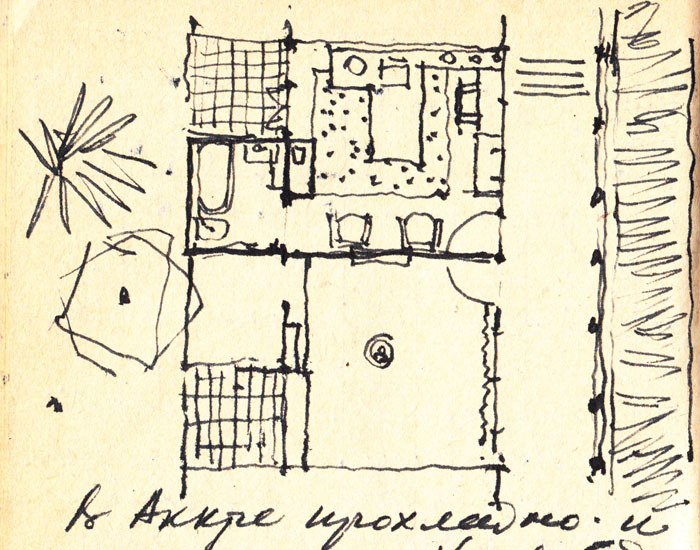 В Аккре прохладно. и